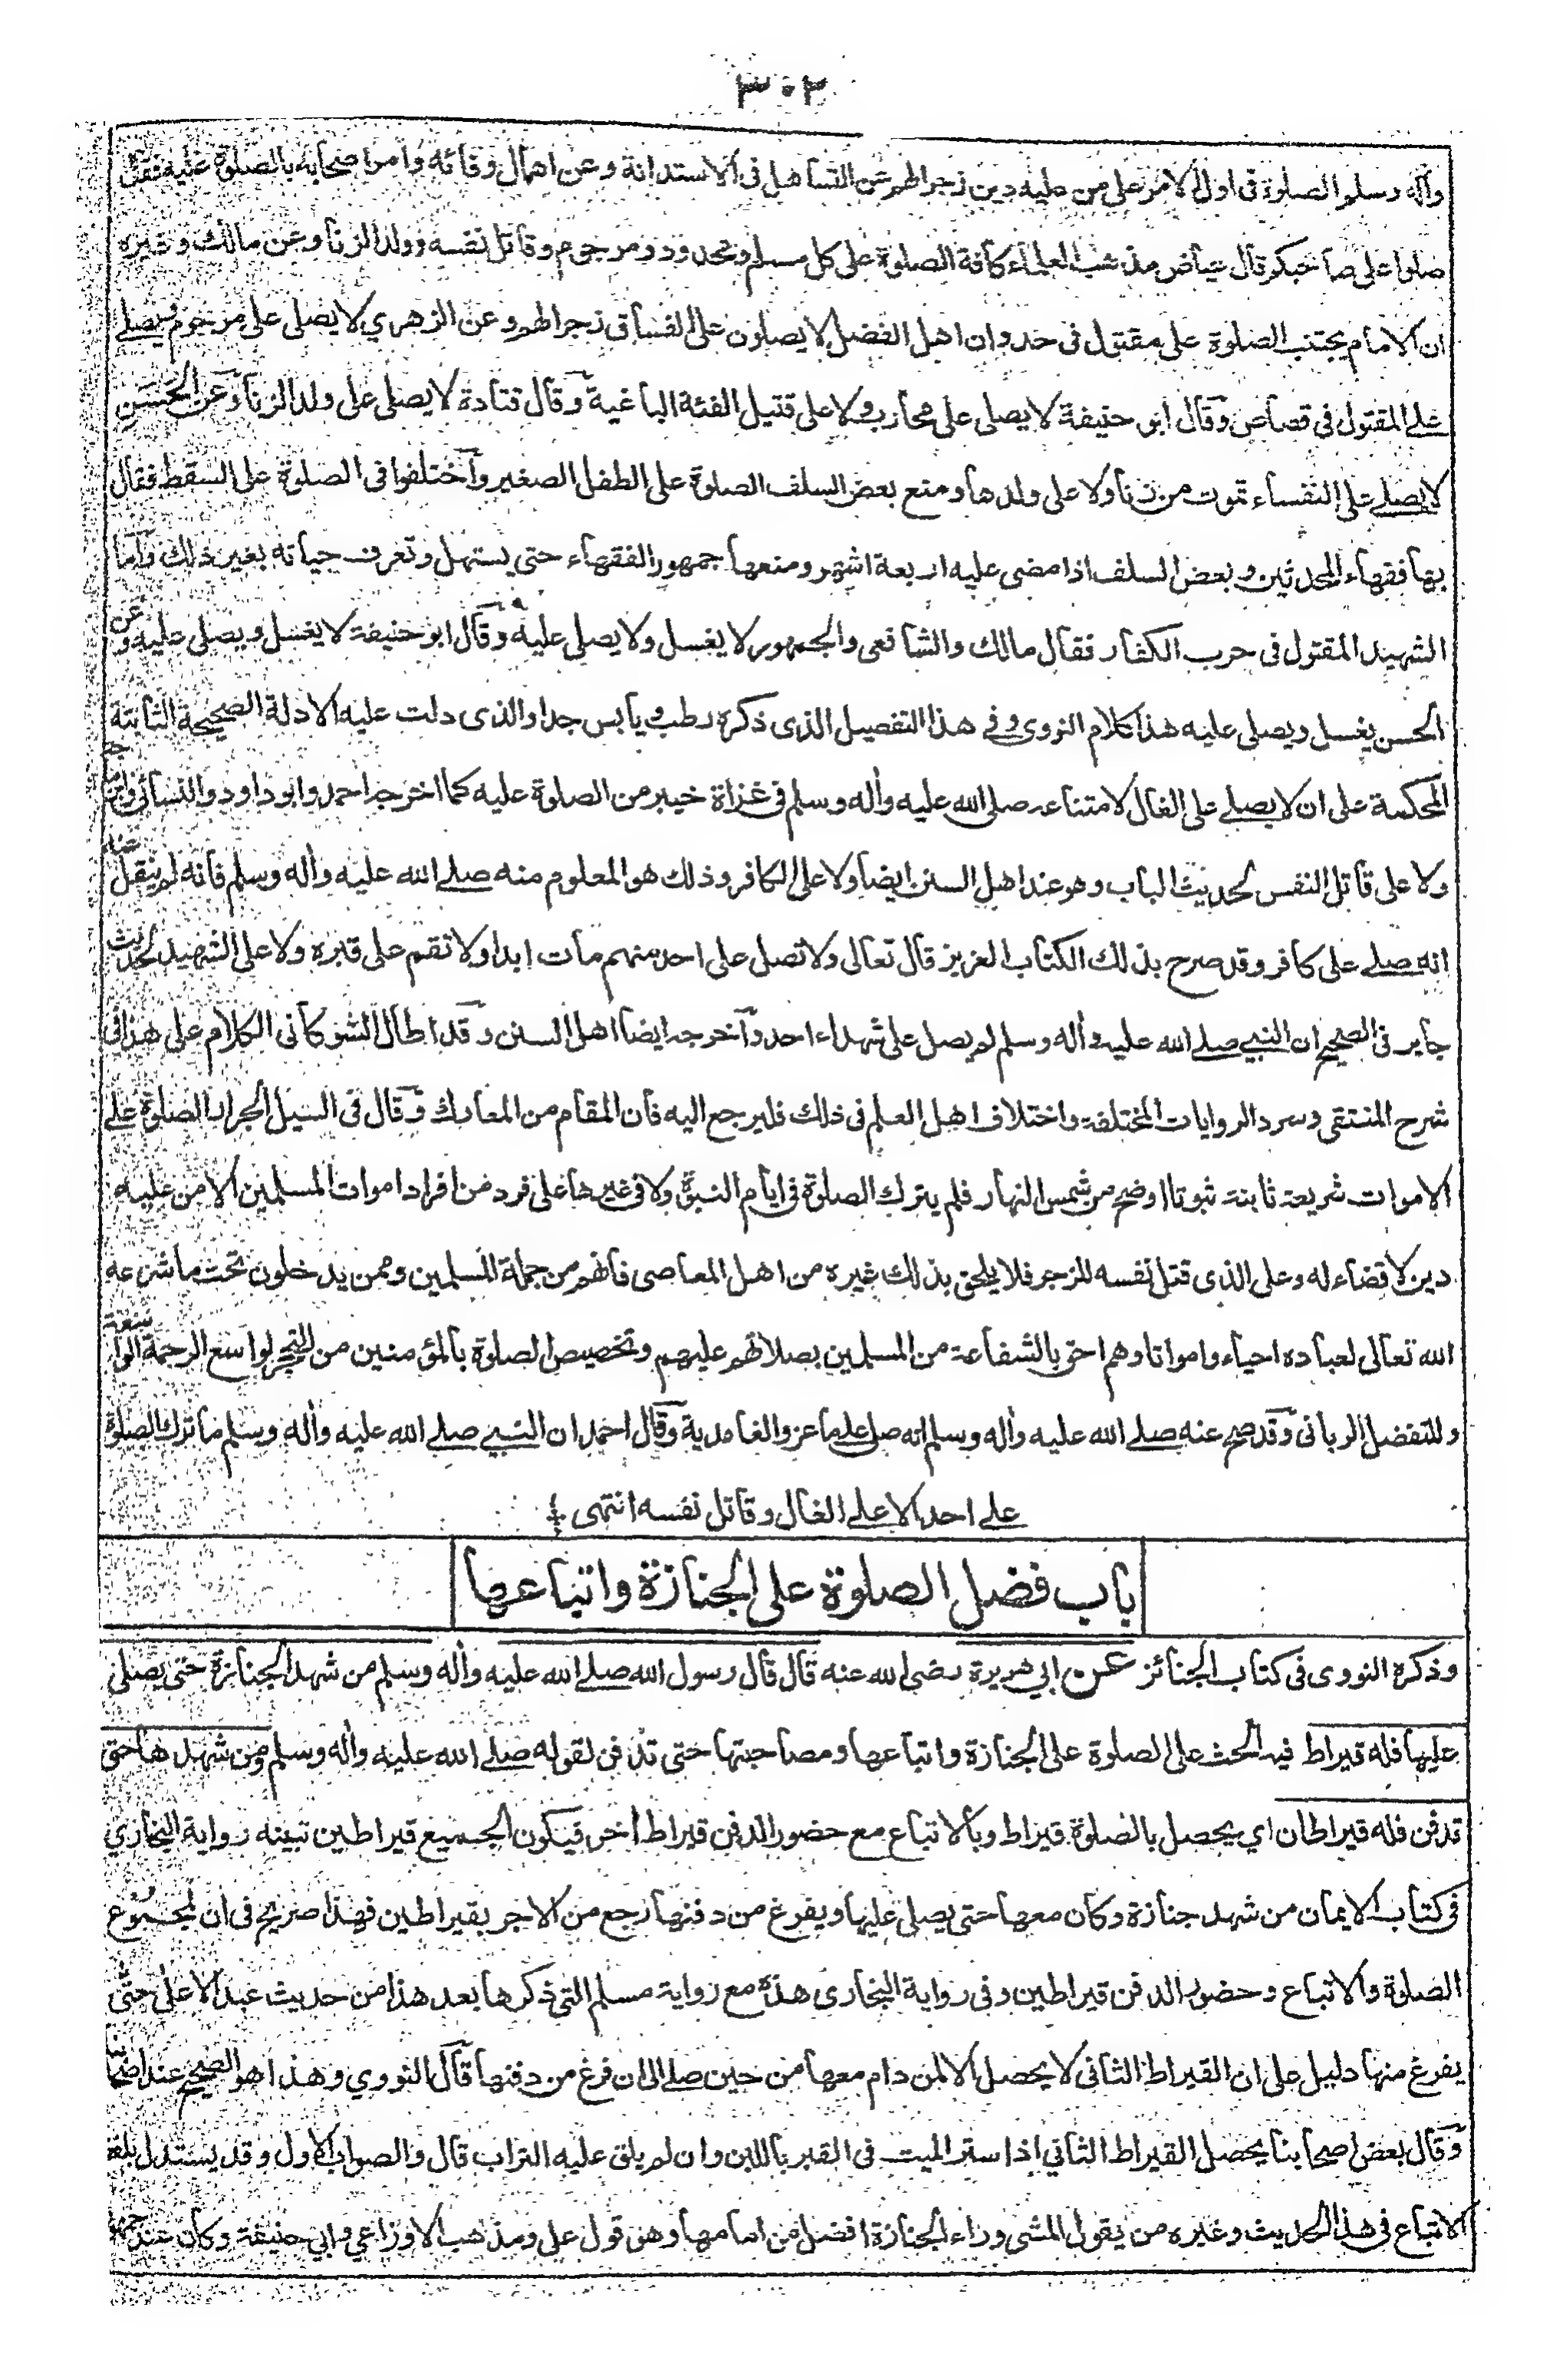 ٣٠٢
وآله وسلم الصلوة فى اول الامر على من عليه دين زجرا لهم عن التساهل فى الاستدانة وعن اهمال وفائه وامر اصحابه بالصلوة عليه فقال
صلوا على صاحبكم قال عياض مذهب العلماء كافة الصلوة على كل مسلم ومحدود ومرجوم وقاتل نفسه وولد الزنا وعن مالك وغيره
ان الامام يجتنب الصلوة على مقتول فى حد وان اهل الفضل لا يصلون على الفساق زجرا لهم وعن الزهري لا يصلى على مرجوم ويصلى
على المقتول فى قصاص وقال ابو حنيفة لا يصلى على محارب ولا على قتيل الفئة الباغية وقال قتادة لا يصلى على ولد الزنا وعن الحسن
لا يصلے على النفساء تموت من زنا ولا على ولدها ومنع بعض السلف الصلوة على الطفل الصغير واختلفوا فى الصلوة على السقط فقال
بها فقهاء المحدثين وبعض السلف اذا مضى عليه اربعة اشهر ومنعها جمهور الفقهاء حتى يستهل وتعرف حياته بغير ذلك واما
الشهيد المقتول فى حرب الكفار فقال مالك والشافعى والجمهور لا يغسل ولا يصلى عليه وقال ابو حنيفة لا يغسل ويصلى عليه وعن
الحسن يغسل ويصلى عليه هذا كلام النووى وفى هذا التفصيل الذى ذكره رطب ويابس جدا والذى دلت عليه الادلة الصحيحة الثابتة
المحكمة على ان لا يصلے على الغال لامتناعه صلى الله عليه وآله وسلم فى غزاة خيبر من الصلوة عليه كما اخرجه احمد وابو داود والنسائى وابن ماجه
ولا على قاتل النفس لحديث الباب وهو عند اهل السنن ايضا ولا على الكافر وذلك هو المعلوم منه صلے الله عليه وآله وسلم فانه لم ينقل عنه
انه صلے على كافر وقد صرح بذلك الكتاب العزيز قال تعالى ولا تصل على احد منهم مات ابدا ولا تقم على قبره ولا على الشهيد لحديث
جابر فى الصحيح ان النبى صلے الله عليه وآله وسلم لم يصل على شهداء احد واخرجه ايضا اهل السنن وقد اطال الشوكانى الكلام على هذا فى
شرح المنتقى وسرد الروايات المختلفة واختلاف اهل العلم فى ذلك فليرجع اليه فان المقام من المعارك وقال فى السيل الجرار الصلوة على
الاموات شريعة ثابتة ثبوتا اوضح من شمس النهار فلم يترك الصلوة فى ايام النبوة ولا فى غيرها على فرد من افراد اموات المسلمين الا من عليه
دين لا قضاء له وعلى الذى قتل نفسه للزجر فلا يلحق بذلك غيره من اهل المعاصى فانهم من جملة المسلمين وممن يدخلون تحت ما شرعه
الله تعالى لعباده احياء وامواتا وهم احق بالشفاعة من المسلمين بصلاتهم عليهم وتخصيص الصلوة بالمؤمنين من التحجر لواسع الرحمة الواسعة
وللتفضل الربانى وقد صح عنه صلے الله عليه وآله وسلم انه صلى على ماعز والغامدية وقال احمد ان النبى صلے الله عليه وآله وسلم ما ترك الصلوة
على احد الا على الغال وقاتل نفسه انتهى
باب فضل الصلوة على الجنازة واتباعها
وذكره النووى فى كتاب الجنائز عن ابى هريرة رضى الله عنه قال قال رسول الله صلے الله عليه وآله وسلم من شهد الجنازة حتى يصلى
عليها فله قيراط فيه الحث على الصلوة على الجنازة واتباعها ومصاحبتها حتى تدفن لقوله صلے الله عليه وآله وسلم ومن شهدها حتى
تدفن فله قيراطان اي يحصل بالصلوة قيراط وبالاتباع مع حضور الدفن قيراط آخر فيكون الجميع قيراطين تبينه رواية البخاري
فى كتاب الايمان من شهد جنازة وكان معها حتى يصلى عليها ويفرغ من دفنها رجع من الاجر بقيراطين فهذا صريح فى ان المجموع
الصلوة والاتباع وحضور الدفن قيراطين وفى رواية البخارى هذه مع رواية مسلم التى ذكرها بعد هذا من حديث عبد الاعلى حتى
يفرغ منها دليل على ان القيراط الثانى لا يحصل الا لمن دام معها من حين صلے الى ان فرغ من دفنها قال النووي وهذا هو الصحيح عند اصحابنا
وقال بعض اصحابنا يحصل القيراط الثانى اذا ستر الميت فى القبر باللبن وان لم يلق عليه التراب قال والصواب الاول وقد يستدل بلفظ
الاتباع فى هذا الحديث وغيره من يقول المشى وراء الجنازة افضل من امامها وهو قول على ومذهب الاوزاعي وابى حنيفة وكان عند